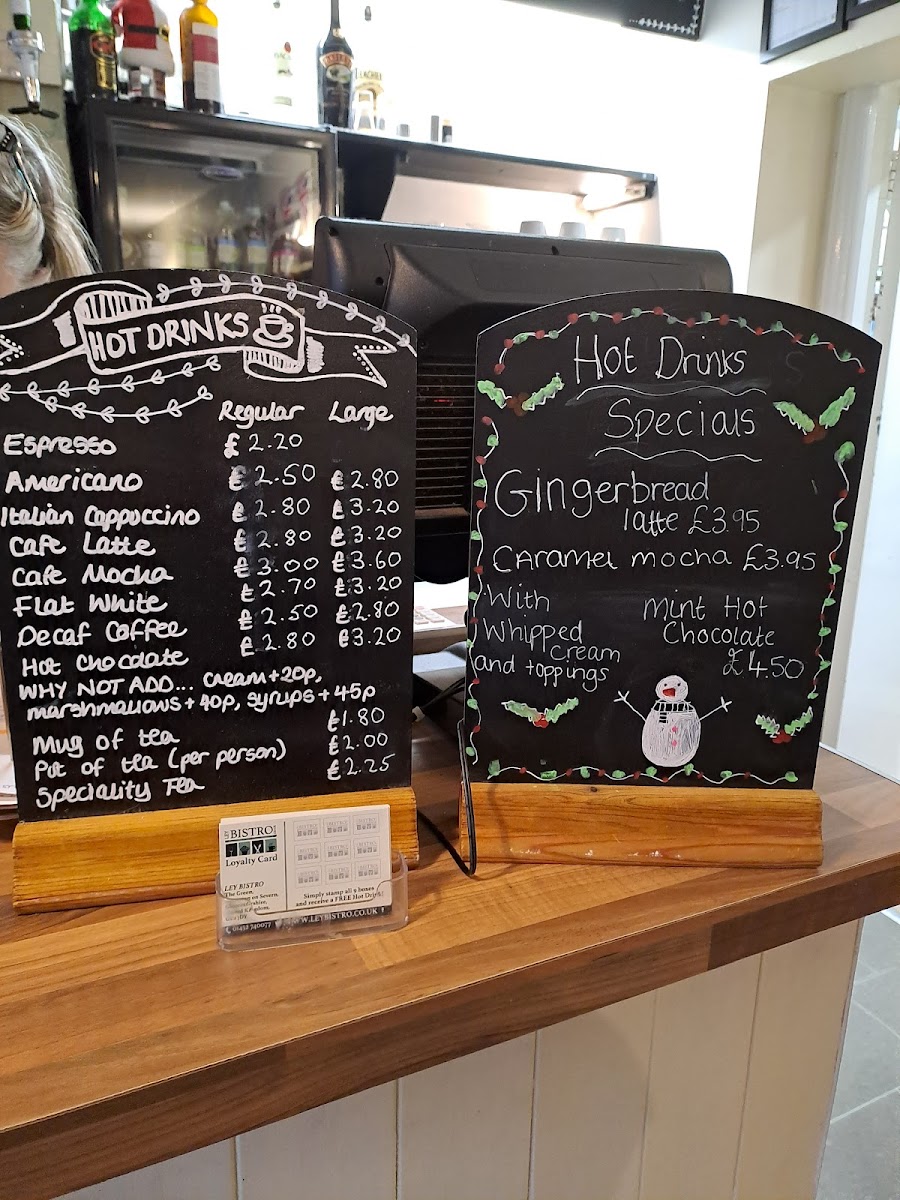 HOT DRINKS
Regular Large
Espresso £2.20
Americano £2.50 £2.80
Italian Cappuccino £2.80 £3.20
Cafe Latte £2.80 £3.20
Cafe Mocha £3.00 £3.60
Flat White £2.70 £3.20
Decaf Coffee £2.50 £2.80
Hot Chocolate £2.80 £3.20
WHY NOT ADD... cream+20p,
marshmallows+40p, syrups+45p
Mug of tea £1.80
Pot of tea (per person) £2.00
Speciality Tea £2.25
Hot Drinks
Specials
Gingerbread
latte £3.95
Caramel mocha £3.95
With
Whipped
cream
and toppings
Mint Hot
Chocolate
£4.50
BISTRO
Loyalty Card
LEY BISTRO
The Green,
on Severn,
Simply stamp all 9 boxes
and receive a FREE Hot Drink!
01452 740077
WWW.LEYBISTRO.CO.UK